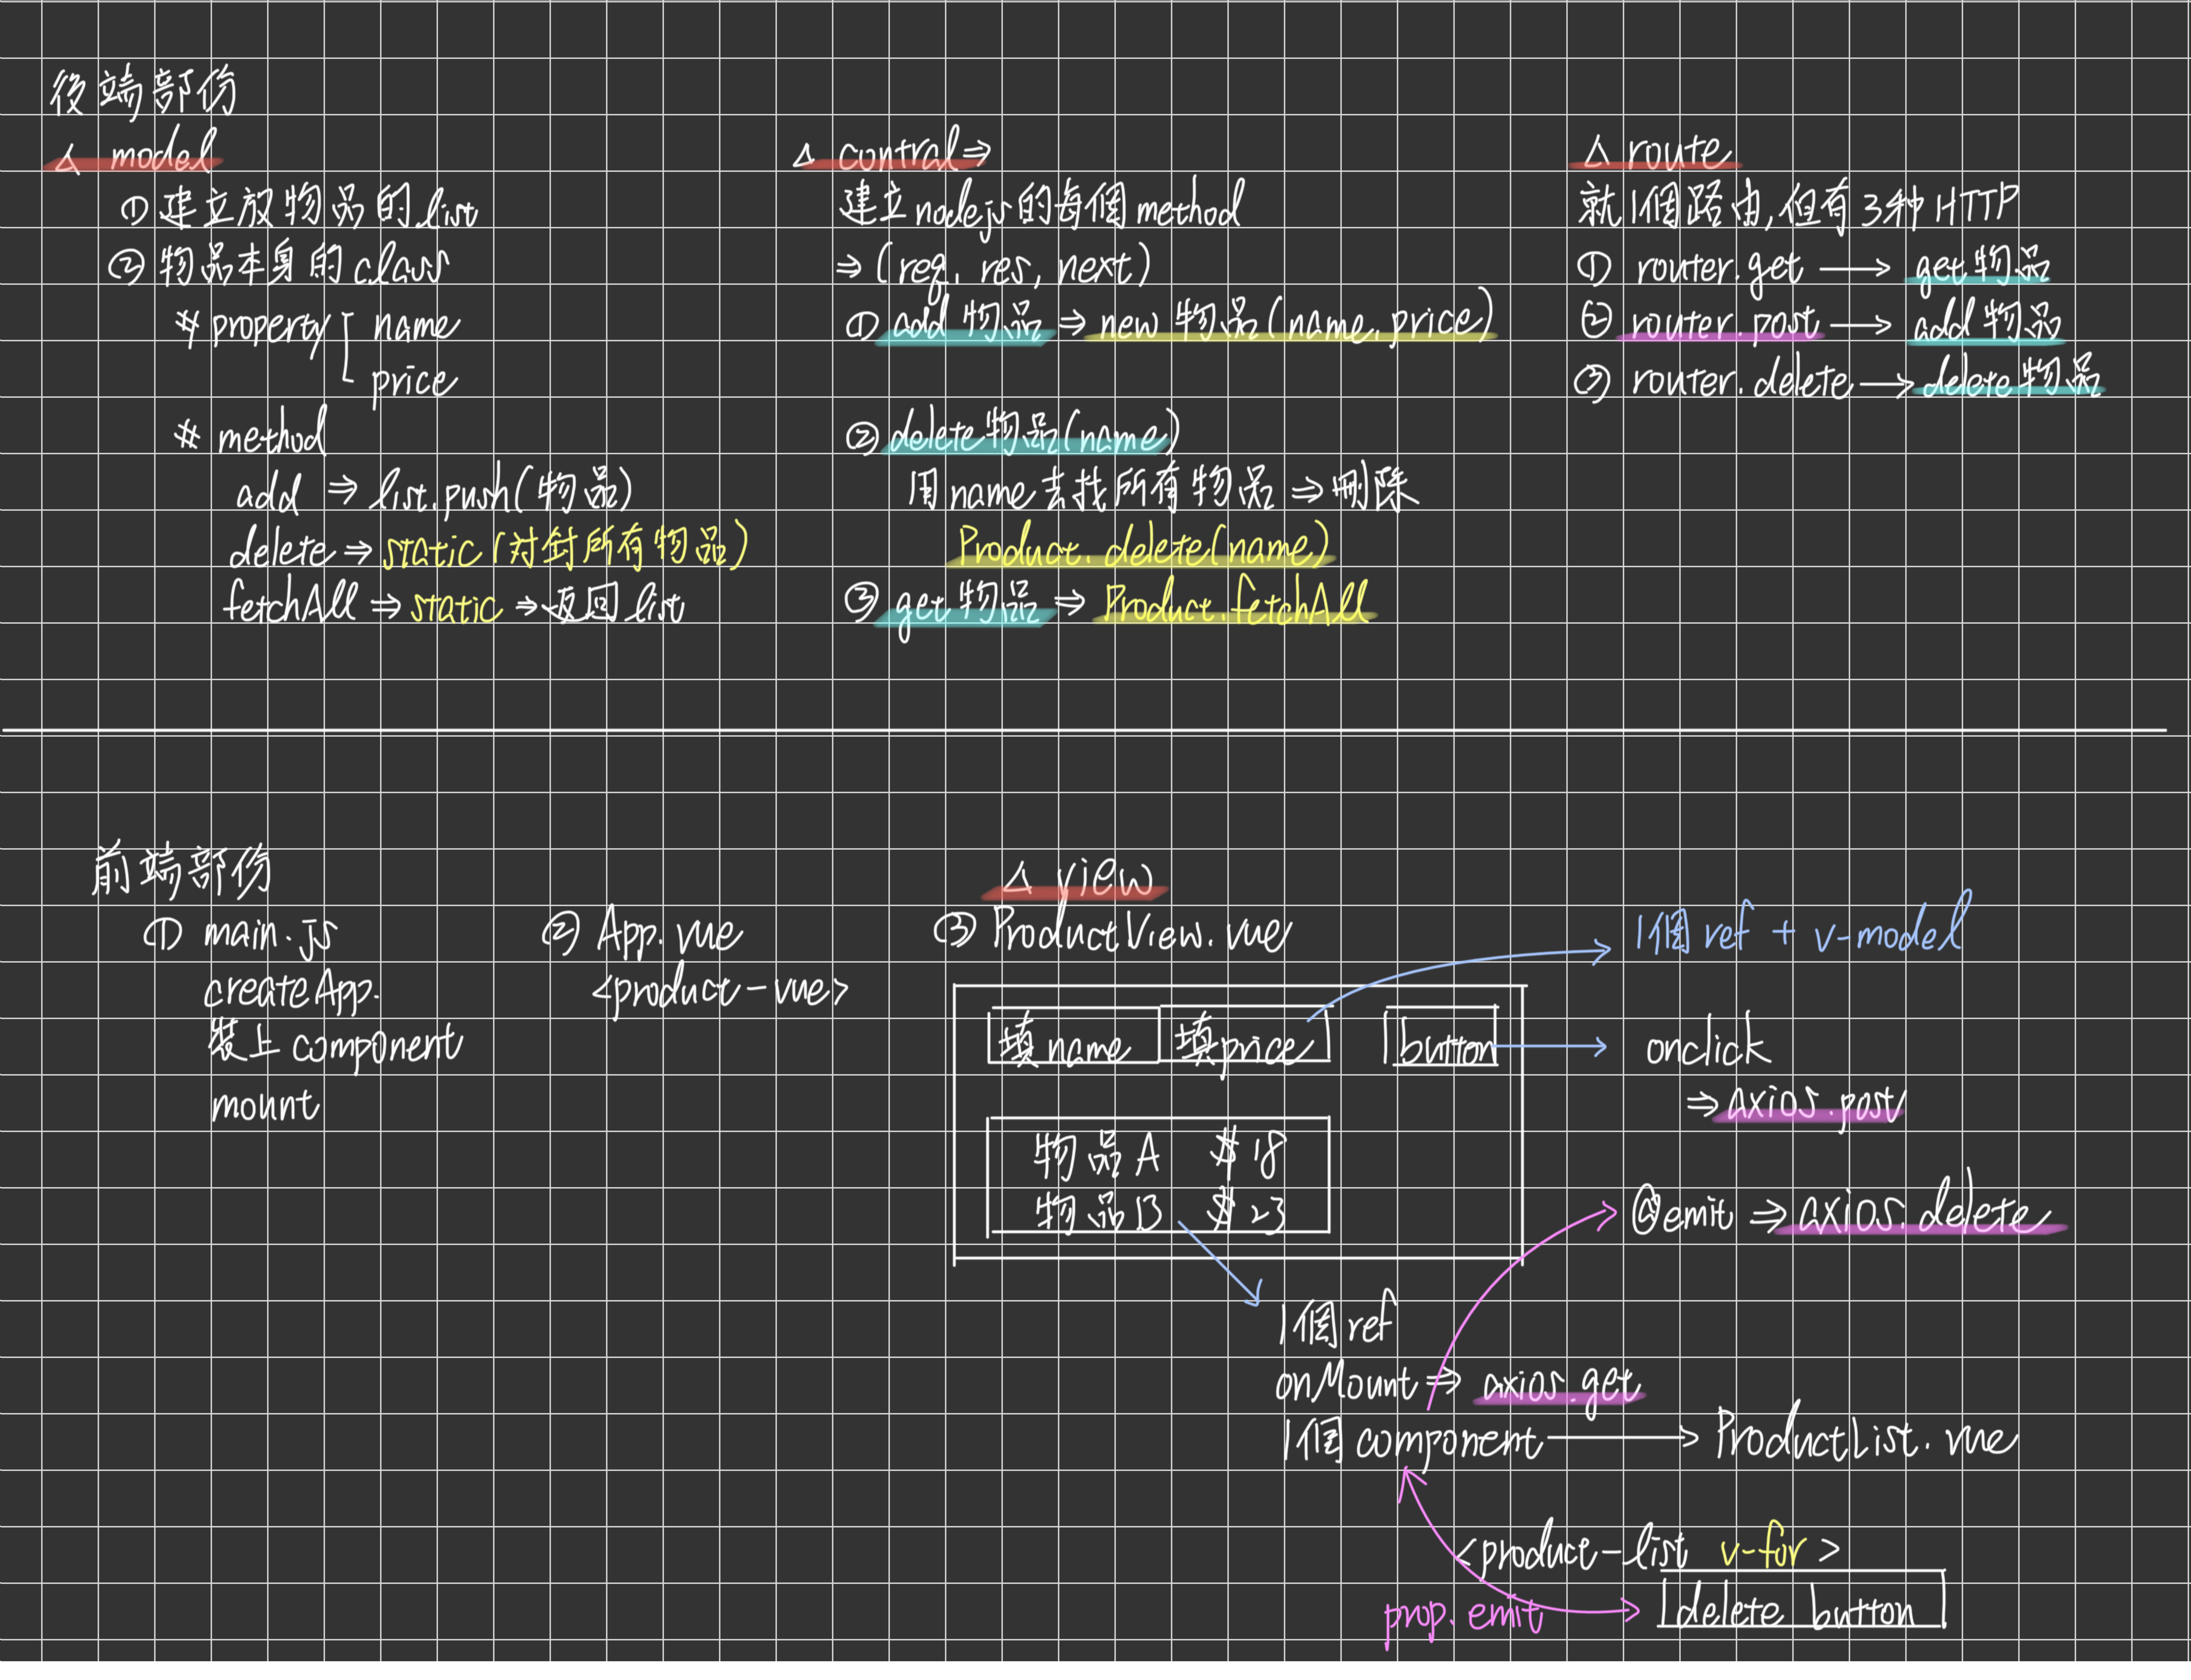 後端部份
△ model
① 建立放物品的list
② 物品本身的class
# property
name
price
# method
add ⇒ list.push(物品)
delete ⇒ static (対針所有物品)
fetchAll ⇒ static ⇒ 返回 list
△ contral ⇒
建立nodejs的每個method
⇒ (req, res, next)
① add 物品 ⇒ new 物品(name, price)
② delete物品(name)
用name去找所有物品 ⇒ 刪除
Product.delete(name)
③ get物品 ⇒ Product.fetchAll
△ route
就1個路由,但有3种HTTP
① router.get → get物品
② router.post → add物品
③ router.delete → delete物品
前端部份
① main.js
createApp.
裝上 component
mount
② App.vue
<product-vue>
△ view
③ ProductView.vue
填name 填price button
物品A $18
物品B $23
1個ref + v-model
onclick
⇒ axios.post
@emit ⇒ axios.delete
1個ref
onMount ⇒ axios.get
1個component → ProductList.vue
<produce-list v-for>
prop. emit
delete button